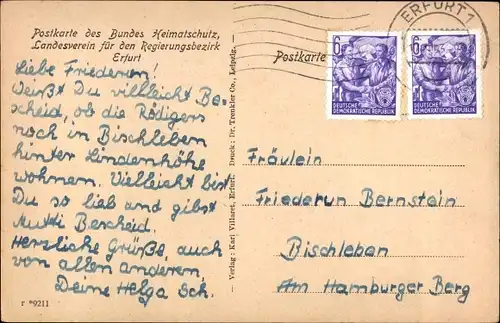 Postkarte des Bundes Heimatschutz,
Landesverein für den Regierungsbezirk
Erfurt
Liebe Friederun!
Weißt Du vielleicht Be-
scheid, ob die Rödigers
noch in Bischleben
hinter Lindenhöhe
wohnen. Vielleicht bist
Du so lieb und gibst
Mutti Bescheid.
Herzliche Grüße, auch
von allen anderen,
Deine Helga Sch.
r *9211
Verlag: Karl Villaret, Erfurt. Druck: Dr. Trenkler Co., Leipzig.
Postkarte
ERFURT 1
6
DEUTSCHE
DEMOKRATISCHE REPUBLIK
6
DEUTSCHE
DEMOKRATISCHE REPUBLIK
Fräulein
Friederun Bernstein
Bischleben
Am Hamburger Berg